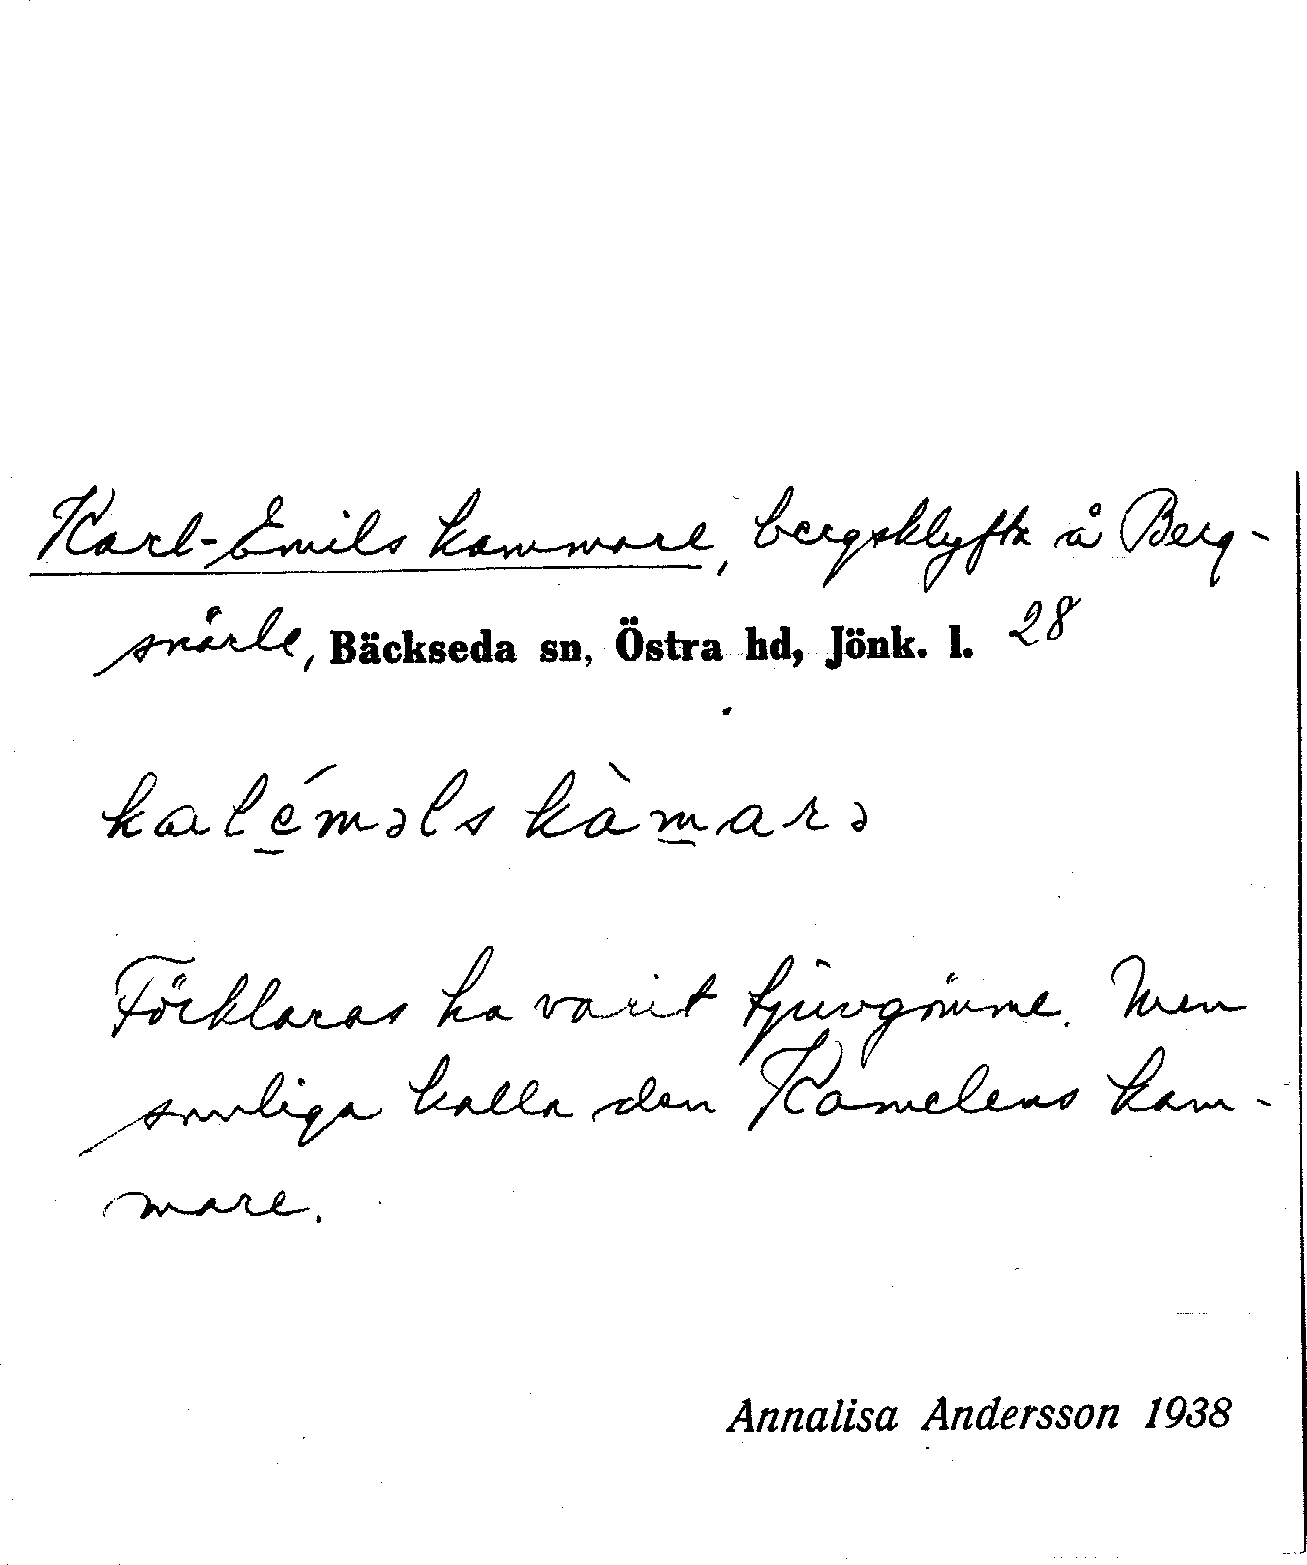 Karl-Emils kammare, bergsklyfta å Berg-
snärle, Bäckseda sn, Östra hd, Jönk. l. 28
kalémǝls kàmarǝ
Förklaras ha varit tjuvgömme. Men
somliga kalla den Kamelens kam-
mare.
Annalisa Andersson 1938